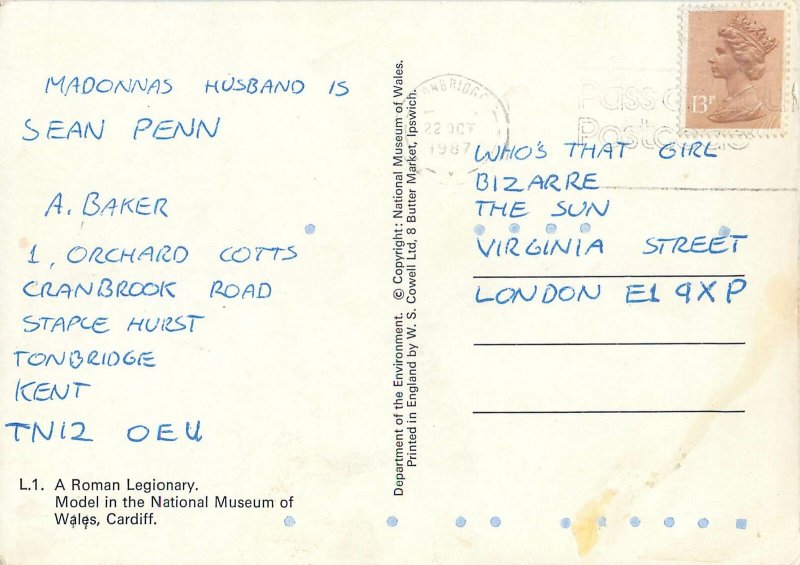 MADONNAS HUSBAND IS
SEAN PENN
A. BAKER
1, ORCHARD COTTS
CRANBROOK ROAD
STAPLE HURST
TONBRIDGE
KENT
TN12 OEU
L.1. A Roman Legionary.
Model in the National Museum of
Wales, Cardiff.
Department of the Environment. © Copyright: National Museum of Wales.
Printed in England by W. S. Cowell Ltd, 8 Butter Market, Ipswich.
TONBRIDGE
22 OCT
1987
13P
WHO'S THAT GIRL
BIZARRE
THE SUN
VIRGINIA STREET
LONDON E1 9XP